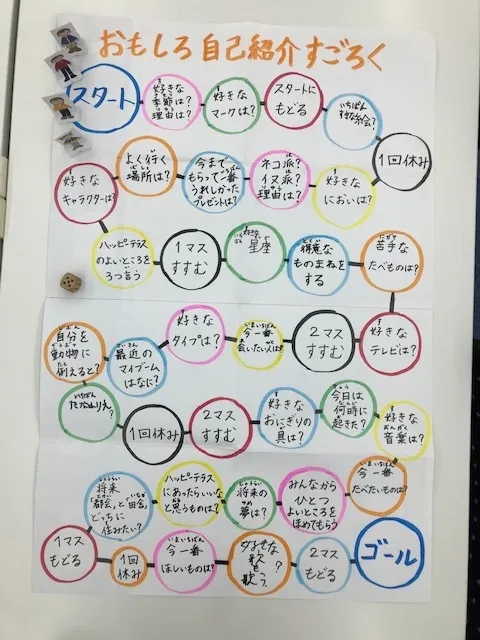 おもしろ自己紹介すごろく
スタート
好きな
季節は?
理由は?
好きな
マークは?
スタートに
もどる
いちばん
1回休み
好きな
においは?
ネコ派?
イヌ派?
理由は?
今まで
もらって一番
うれしかった
プレゼントは?
よく行く
場所は?
好きな
キャラクターは?
ハッピーテラス
のよいところを
3つ言う
1マス
すすむ
星座
得意な
ものまねを
する
苦手な
たべものは?
好きな
テレビは?
2マス
すすむ
今一番
会いたい人は?
好きな
タイプは?
最近の
マイブーム
はなに?
自分を
動物に
例えると?
1回休み
2マス
すすむ
好きな
おにぎりの
具は?
今日は
何時に
起きた?
好きな
音楽は?
今一番
たべたいものは?
みんなから
ひとつ
よいところを
ほめてもらう
将来の
夢は?
ハッピーテラス
にあったらいいな
と思うものは?
将来
「都会」と「田舎」
どっちに
住みたい?
1マス
もどる
1回
休み
今一番
ほしいものは?
2マス
もどる
ゴール